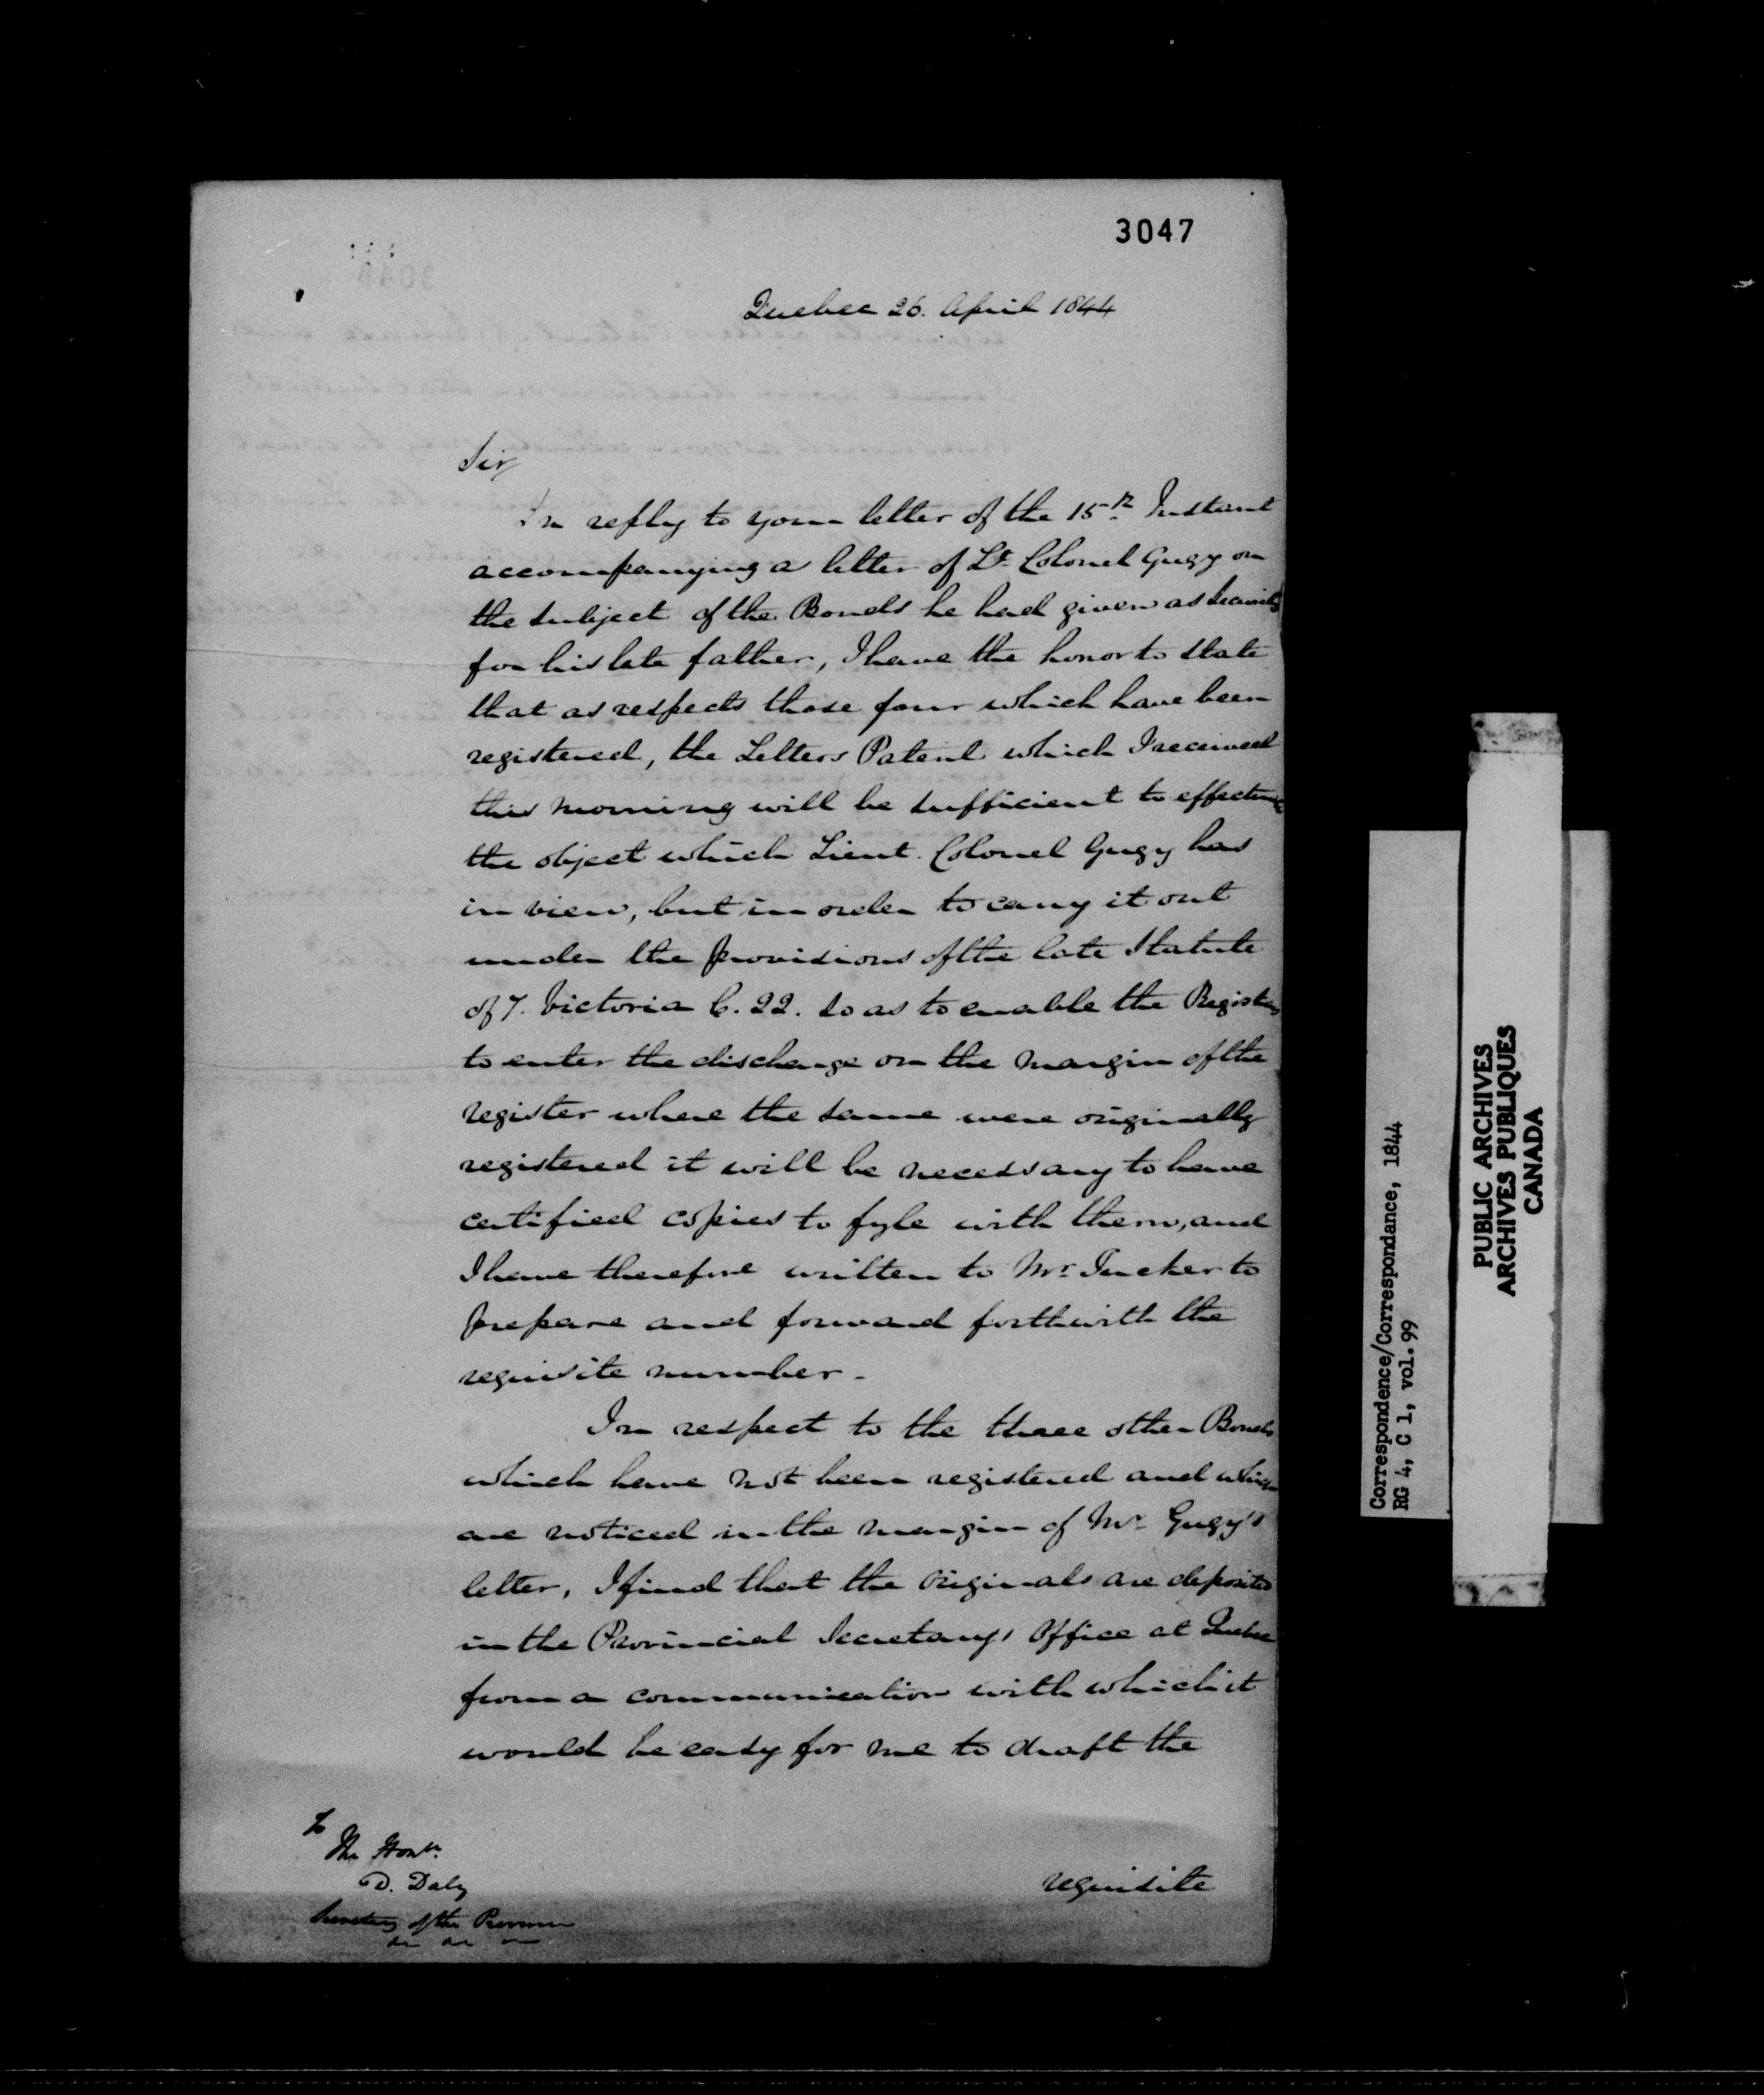 3047
Quebec 26. April 1844
Sir,
In reply to your letter of the 15th Instant
accompanying a letter of Lt. Colonel Gugy on
the subject of the Bonds he had given as Security
for his late father, I have the honor to state
that as respects those four which have been
registered, the Letters Patent which I received
this morning will be sufficient to effectuate
the object which Lieut. Colonel Gugy has
in view, but in order to carry it out
under the provisions of the late Statute
of 7. Victoria C. 22. so as to enable the Registrar
to enter the discharge on the margin of the
register where the same were originally
registered it will be necessary to have
certified copies to fyle with them, and
I have therefore written to Mr. Tucker to
prepare and forward forthwith the
requisite number.
In respect to the three other Bonds
which have not been registered and which
are noticed in the margin of Mr. Gugy's
letter, I find that the originals are deposited
in the Provincial Secretary's Office at Quebec
from a communication with which it
would be easy for me to draft the
requisite
To
The Honble.
D. Daly
Secretary of the Province
Correspondence/Correspondance, 1844
RG 4, C 1, vol. 99
PUBLIC ARCHIVES
ARCHIVES PUBLIQUES
CANADA